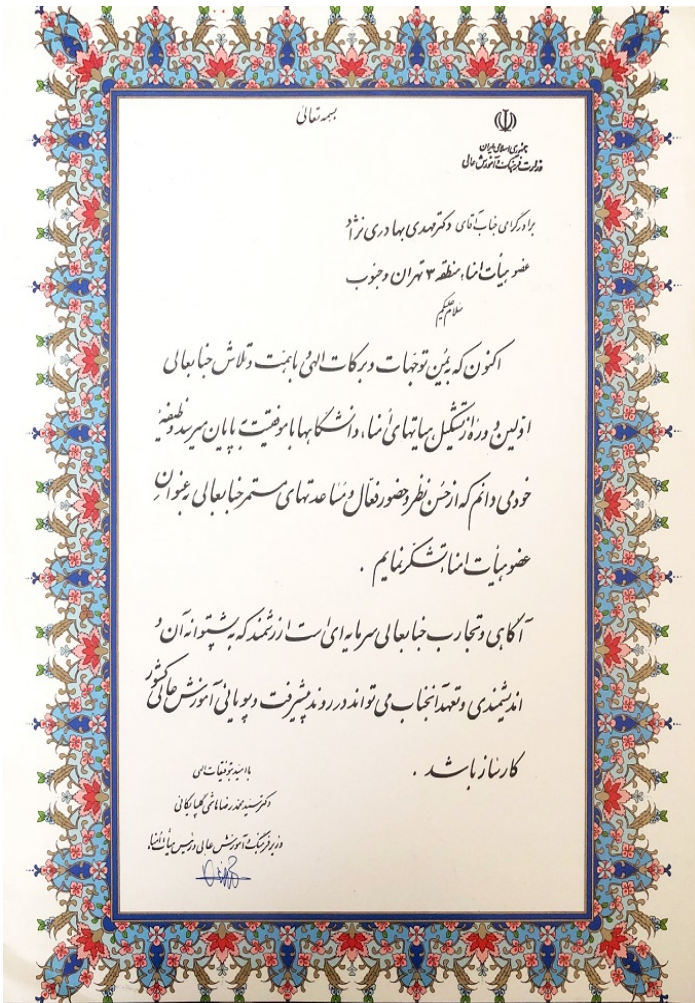 بسمه تعالی
جمهوری اسلامی ایران
وزارت فرهنگ و آموزش عالی
برادر گرامی جناب آقای دکتر مهدی بهادری نژاد
عضو هیأت امناء منطقه ۳ تهران و جنوب
سلام علیکم
اکنون که به یمن توجهات و برکات الهی و با همت و تلاش جنابعالی
اولین دوره از تشکیل هیأتهای أمناء دانشگاهها با موفقیت به پایان میرسد وظیفه
خود می دانم که از حسن نظر و حضور فعال و مساعدتهای مستمر جنابعالی به عنوان
عضو هیأت امناء تشکر نمایم .
آگاهی و تجارب جنابعالی سرمایه ای است ارزشمند که به پشتوانه آن و
اندیشمندی و تعهد آنجناب می تواند در روند پیشرفت و پویائی آموزش عالی کشور
کارساز باشد .
با امید توفیقات الهی
دکتر سید محمد رضا هاشمی گلپایگانی
وزیر فرهنگ و آموزش عالی و رئیس هیأت أمناء